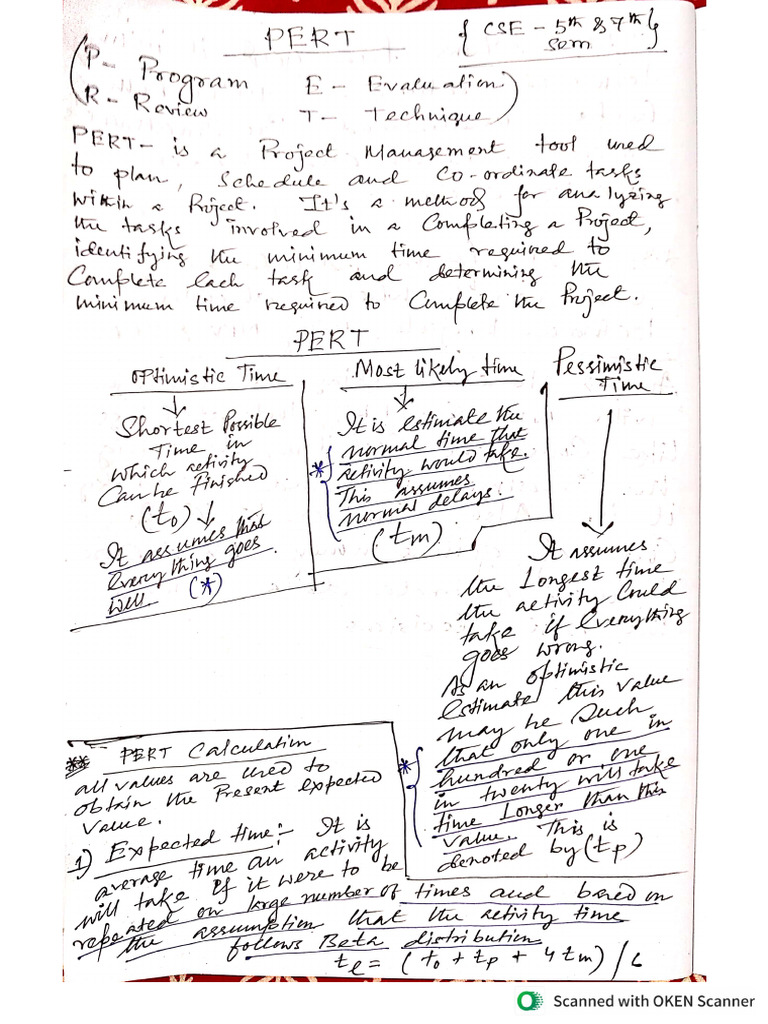 PERT
{ CSE - 5th & 7th }
Sem
(P - Program E - Evaluation
R - Review T - Technique)
PERT - is a Project Management tool used
to plan, schedule and co-ordinate tasks
within a Project. It's a method for analyzing
the tasks involved in a Completing a Project,
identifying the minimum time required to
Complete each task and determining the
minimum time required to Complete the Project.
PERT
Optimistic Time
Shortest Possible
Time in
which activity
Can be Finished
(to)
It assumes that
everything goes
well (*)
Most likely time
It is estimate the
normal time that
* activity would take.
This assumes
normal delays.
(tm)
Pessimistic
Time
It assumes
the Longest time
the activity Could
take if everything
goes wrong.
As an optimistic
estimate this value
may be such
* that only one in
hundred or one
in twenty will take
time Longer than this
value. This is
denoted by (tp)
** PERT Calculation
all values are used to
obtain the Present expected
value.
1) Expected time:- It is
average time an activity
will take If it were to be
repeated on large number of times and based on
the assumption that the activity time
follows Beta distribution
te = (to + tp + 4tm) / 6
Scanned with OKEN Scanner